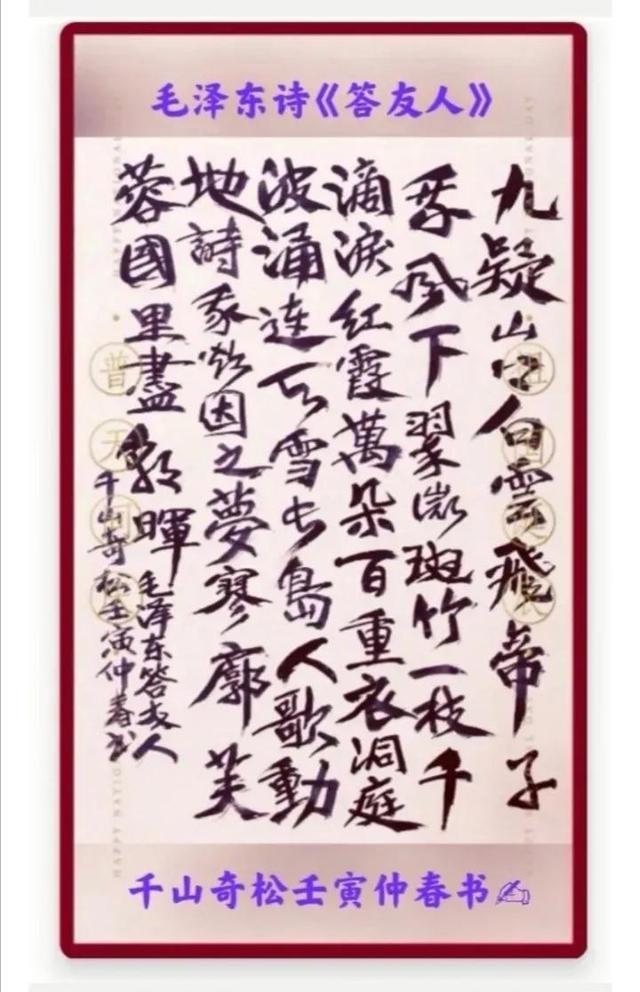 毛泽东诗《答友人》
九疑山上白雲飛帝子
乘风下翠微斑竹一枝千
滴淚紅霞萬朵百重衣洞庭
波涌連天雪长島人歌動
地詩我欲因之夢寥廓芙
蓉國里盡朝暉
毛泽东答友人
千山奇松壬寅仲春书
千山奇松壬寅仲春书✍